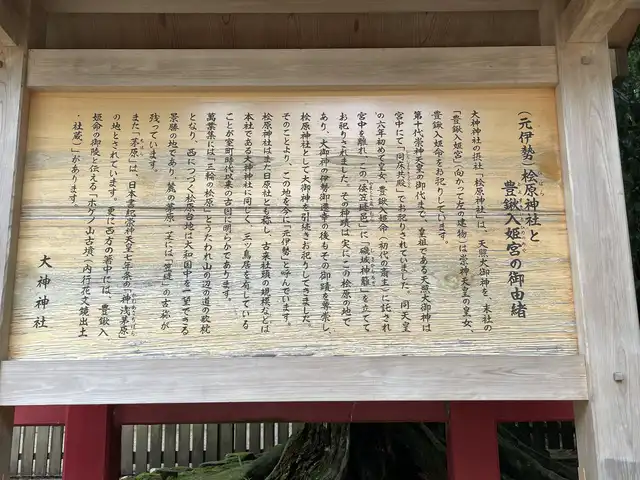 (元伊勢)桧原神社と
豊鍬入姫宮の御由緒
大神神社の摂社「桧原神社」は、天照大御神を、末社の
「豊鍬入姫宮」(向かって左の建物)は崇神天皇の皇女、
豊鍬入姫命をお祀りしています。
第十代崇神天皇の御代まで、皇祖である天照大御神は
宮中にて「同床共殿」でお祀りされていました。同天皇
の六年初めて皇女、豊鍬入姫命(初代の斎王)に託され
宮中を離れ、この「倭笠縫邑」に「磯城神籬」を立てて
お祀りされました。その神蹟は実にこの桧原の地で
あり、大御神の伊勢御遷幸の後もその御蹟を尊崇し、
桧原神社として大御神を引続きお祀りしてきました。
そのことより、この地を今に「元伊勢」と呼んでいます。
桧原神社はまた日原社とも称し、古来社頭の規模などは
本社である大神神社に同じく、三ツ鳥居を有している
ことが室町時代以来の古図に明らかであります。
萬葉集には「三輪の桧原」とうたわれ山の辺の道の歌枕
となり、西につづく桧原台地は大和国中を一望できる
景勝の地であり、麓の茅原・芝には「笠縫」の古称が
残っています。
また「茅原」は、日本書紀崇神天皇七年条の「神浅茅原」
の地とされています。更に西方の箸中には、豊鍬入
姫命の御陵と伝える「ホケノ山古墳」(内行花文鏡出土
・社蔵)があります。
大神神社